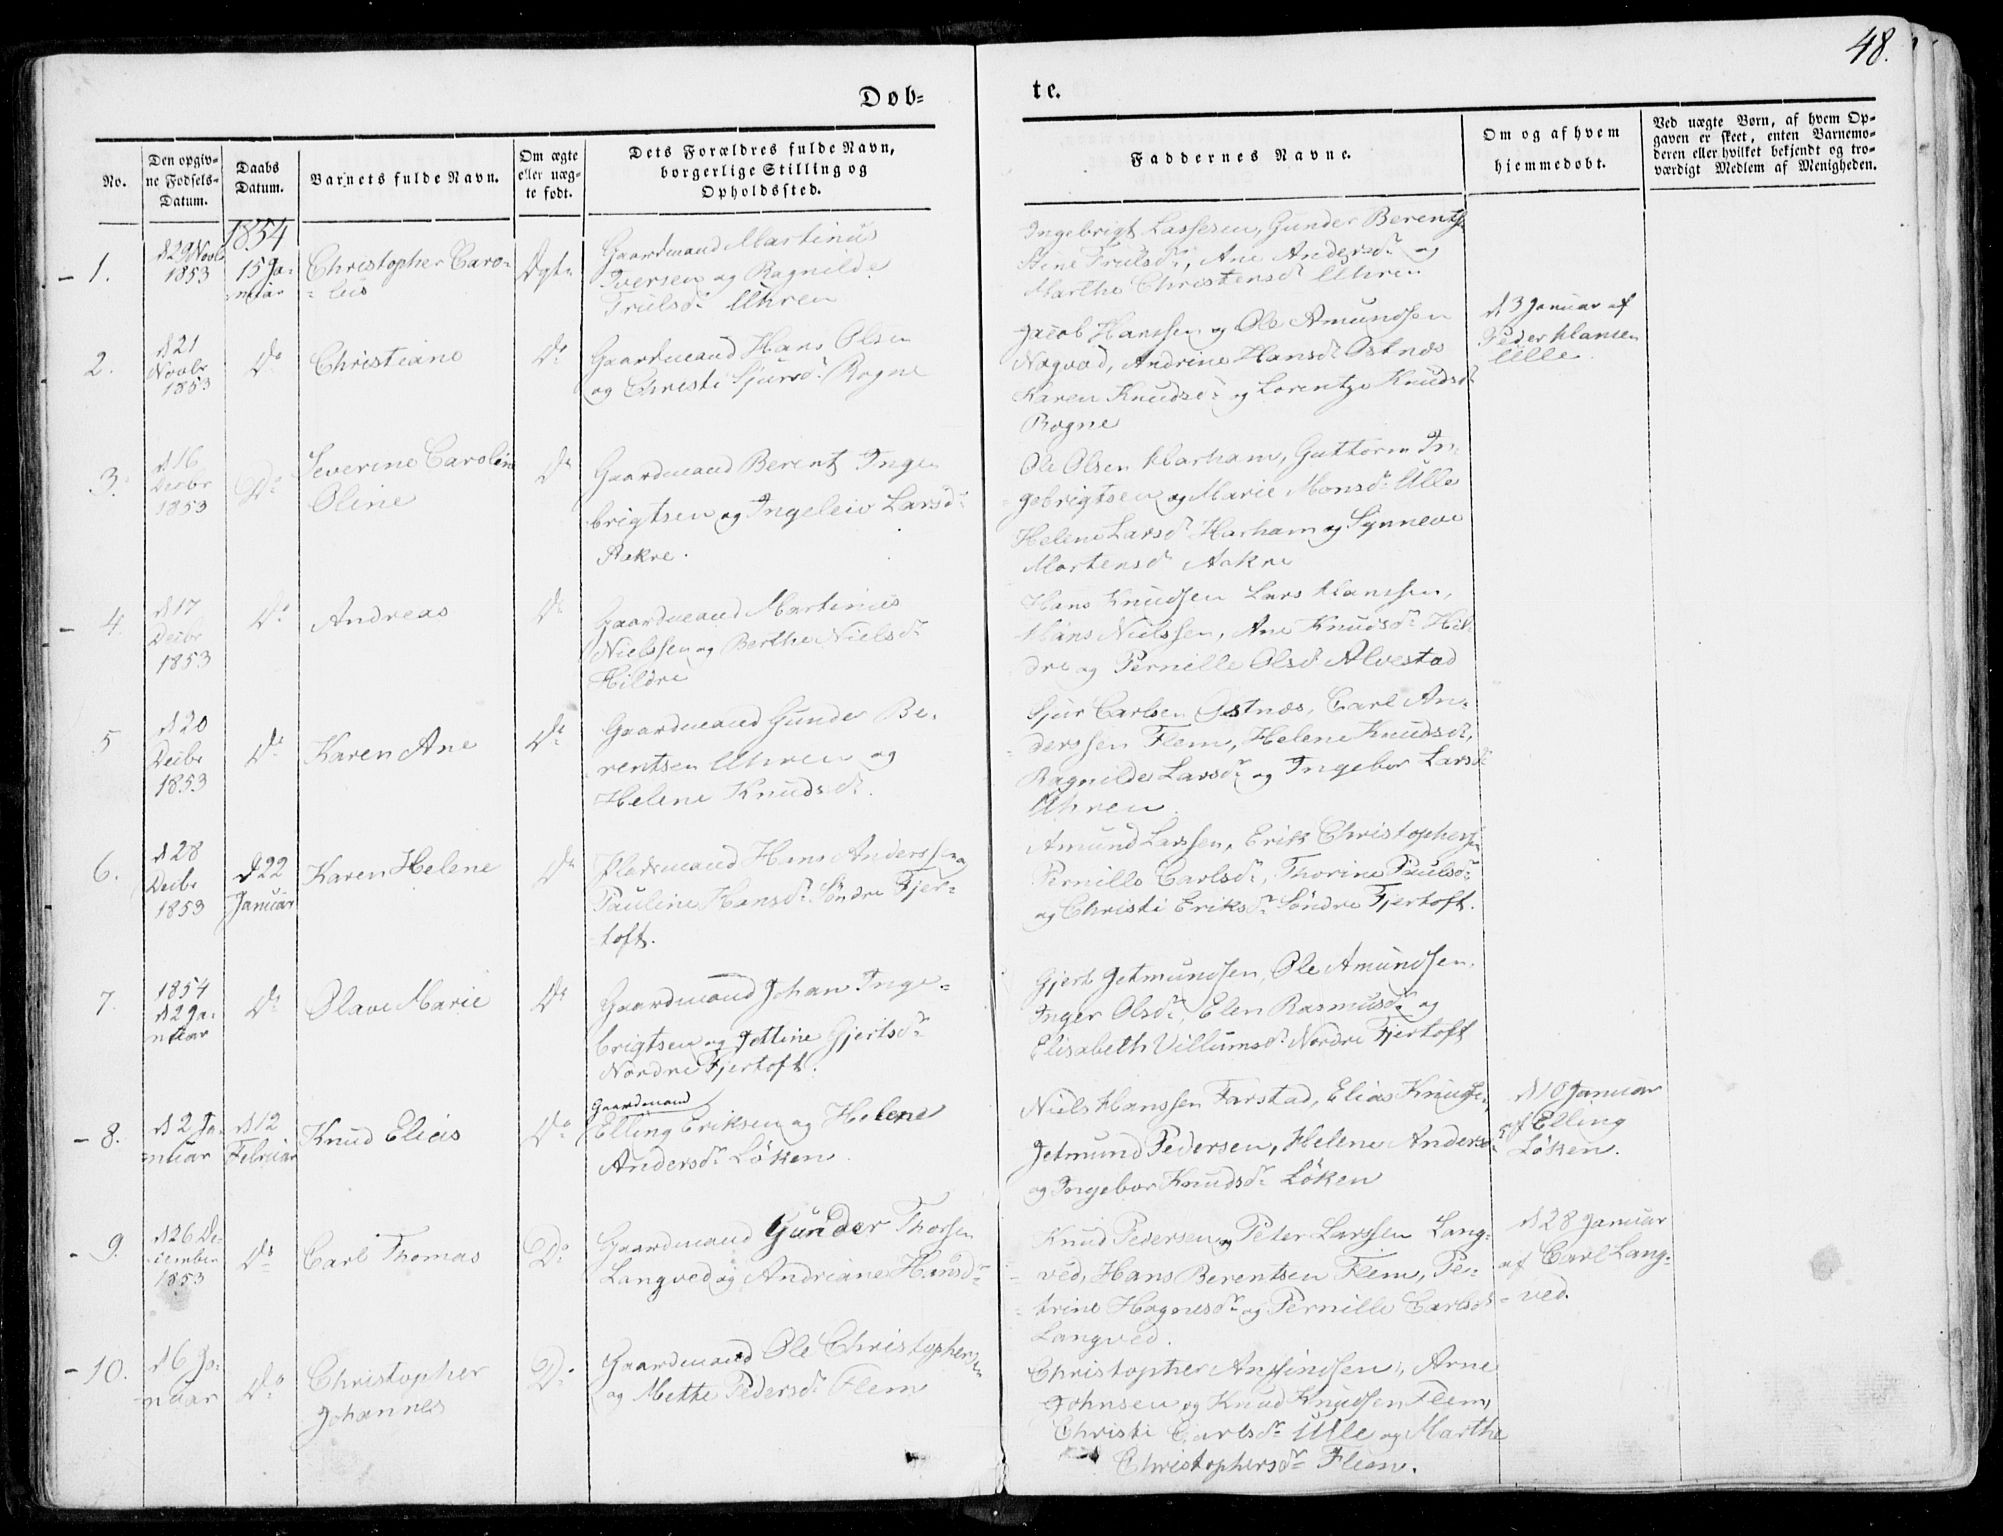 48.
Døb-
te.
No.
Den opgiv-
ne Fødsels-
Datum.
Daabs
Datum.
Barnets fulde Navn.
Om ægte
eller uæg-
te født.
Dets Forældres fulde Navn,
borgerlige Stilling og
Opholdssted.
Faddernes Navne.
Om og af hvem
hjemmedøbt.
Ved uægte Børn, af hvem Op-
gaven er skeet, enten Barnemo-
deren eller hvilket bekjendt og tro-
værdigt Medlem af Menigheden.
1854
1.
d 29 Novbr
1853
15 Ja-
nuar
Christopher Caro-
lus
Ægte
Gaardmand Martinus
Iversen og Ragnilde
Trulsdr Uhren
Ingebrigt Lassesen, Gunder Berents
Stine Trulsdr, Ane Andersdr og
Marthe Christensdr Uhren
2.
d 21
Novbr
1853
Do
Christiane
Do
Gaardmand Hans Olsen
og Christi Sjursdr Rogne
Jacob Hanssen og Ole Amundsen
Nogvad, Andrine Hansdr Østnæs
Karen Knudsdr og Lorentze Knudsdr
Rogne
d 3 Januar af
Peder Hansen
Ulle
3.
d 16
Decbr
1853
Do
Severine Carolin
Oline
Do
Gaardmand Berent Inge-
brigtsen og Ingeleiv Larsdr
Aakre.
Ole Olsen Harham, Guttorm In-
gebrigtsen og Marie Monsdr Ulle
Helene Larsdr Harham og Synneve
Mortensdr Aakre
4.
d 17
Decbr
1853
Do
Andreas
Do
Gaardmand Martinus
Nielssen og Berthe Nielsdr
Hildre
Hans Knudsen Lars Hanssen,
Hans Nielssen, Ane Knudsdr Hil-
dre og Pernille Olsdr Alvestad
5
d 20
Decbr
1853
Do
Karen Ane
Do
Gaardmand Gunder Be-
rentsen Uhren og
Helene Knudsdr.
Sjur Carlsen Østnæs, Carl An-
derssen Flem, Helene Knudsdr,
Ragnilde Larsdr og Ingebor Larsdr
Uhren.
6.
d 28
Decbr
1853
d 22
Januar
Karen Helene
Do
Pladsmand Hans Anderssen og
Pauline Hansdr Søndre Fjer-
toft.
Amund Larssen, Erik Christophersen
Pernille Carlsdr, Thorine Paulsdr
og Christi Eriksdr Søndre Fjertoft.
7.
1854
d 2 Ja-
nuar
Do
Olave Marie
Do
Gaardmand Johan Inge-
brigtsen og Jettine Gjertsdr
Nordre Fjertoft.
Gjert Jetmundsen, Ole Amundsen,
Inger Olsdr, Elen Rasmusdr og
Elisabeth Villumsdr Nordre Fjertoft
8.
d 2 Ja-
nuar
d 12
Februar
Knud Elias
Do
Gaardmand
Elling Eriksen og Helene
Andersdr Løken
Niels Hanssen Farstad, Elias Knudsen,
Jetmund Pedersen, Helene Andersdr
og Ingebor Knudsdr Løken
d 10 Januar
af Elling
Løken.
9.
d 26 De-
cember
1853
Do
Carl Thomas
Do
Gaardmand Gunder Thorsen
Langved og Andriane Hansdr
Knud Pedersen og Peter Larssen Lang-
ved, Hans Berentsen Flem, Pe-
trine Hagnesdr og Pernille Carlsdr
Langved.
d 28 Januar
af Carl Lang-
ved.
10.
d 6 Ja-
nuar
Do
Christopher
Johannes
Do
Gaardmand Ole Christophersen
og Mette Pedersdr Flem
Christopher Amundsen, Arne
Johnsen og Knud Knudsen Flem,
Christi Carlsdr Ulle og Marthe
Christophersdr Flem.